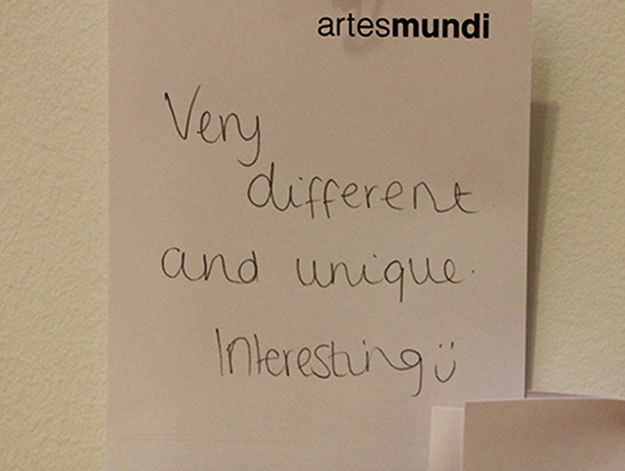 artesmundi
Very
different
and unique.
Interesting ü